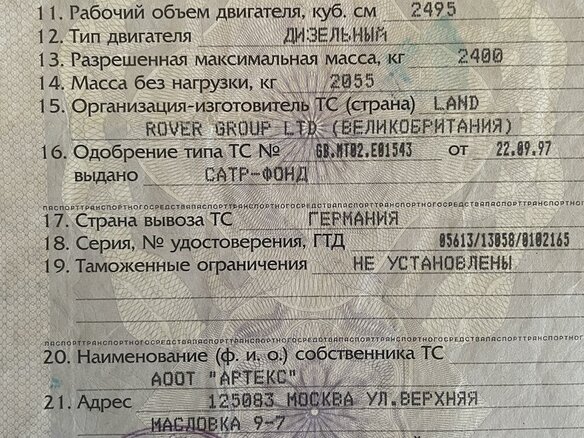 11. Рабочий объем двигателя, куб. см 2495
12. Тип двигателя ДИЗЕЛЬНЫЙ
13. Разрешенная максимальная масса, кг 2400
14. Масса без нагрузки, кг 2055
15. Организация-изготовитель ТС (страна) LAND
ROVER GROUP LTD (ВЕЛИКОБРИТАНИЯ)
16. Одобрение типа ТС № GB.MT02.E01543 от 22.09.97
выдано САТР-ФОНД
17. Страна вывоза ТС ГЕРМАНИЯ
18. Серия, № удостоверения, ГТД 05613/13058/0102165
19. Таможенные ограничения НЕ УСТАНОВЛЕНЫ
20. Наименование (ф. и. о.) собственника ТС
АООТ "АРТЕКС"
21. Адрес 125083 МОСКВА УЛ.ВЕРХНЯЯ
МАСЛОВКА 9-7